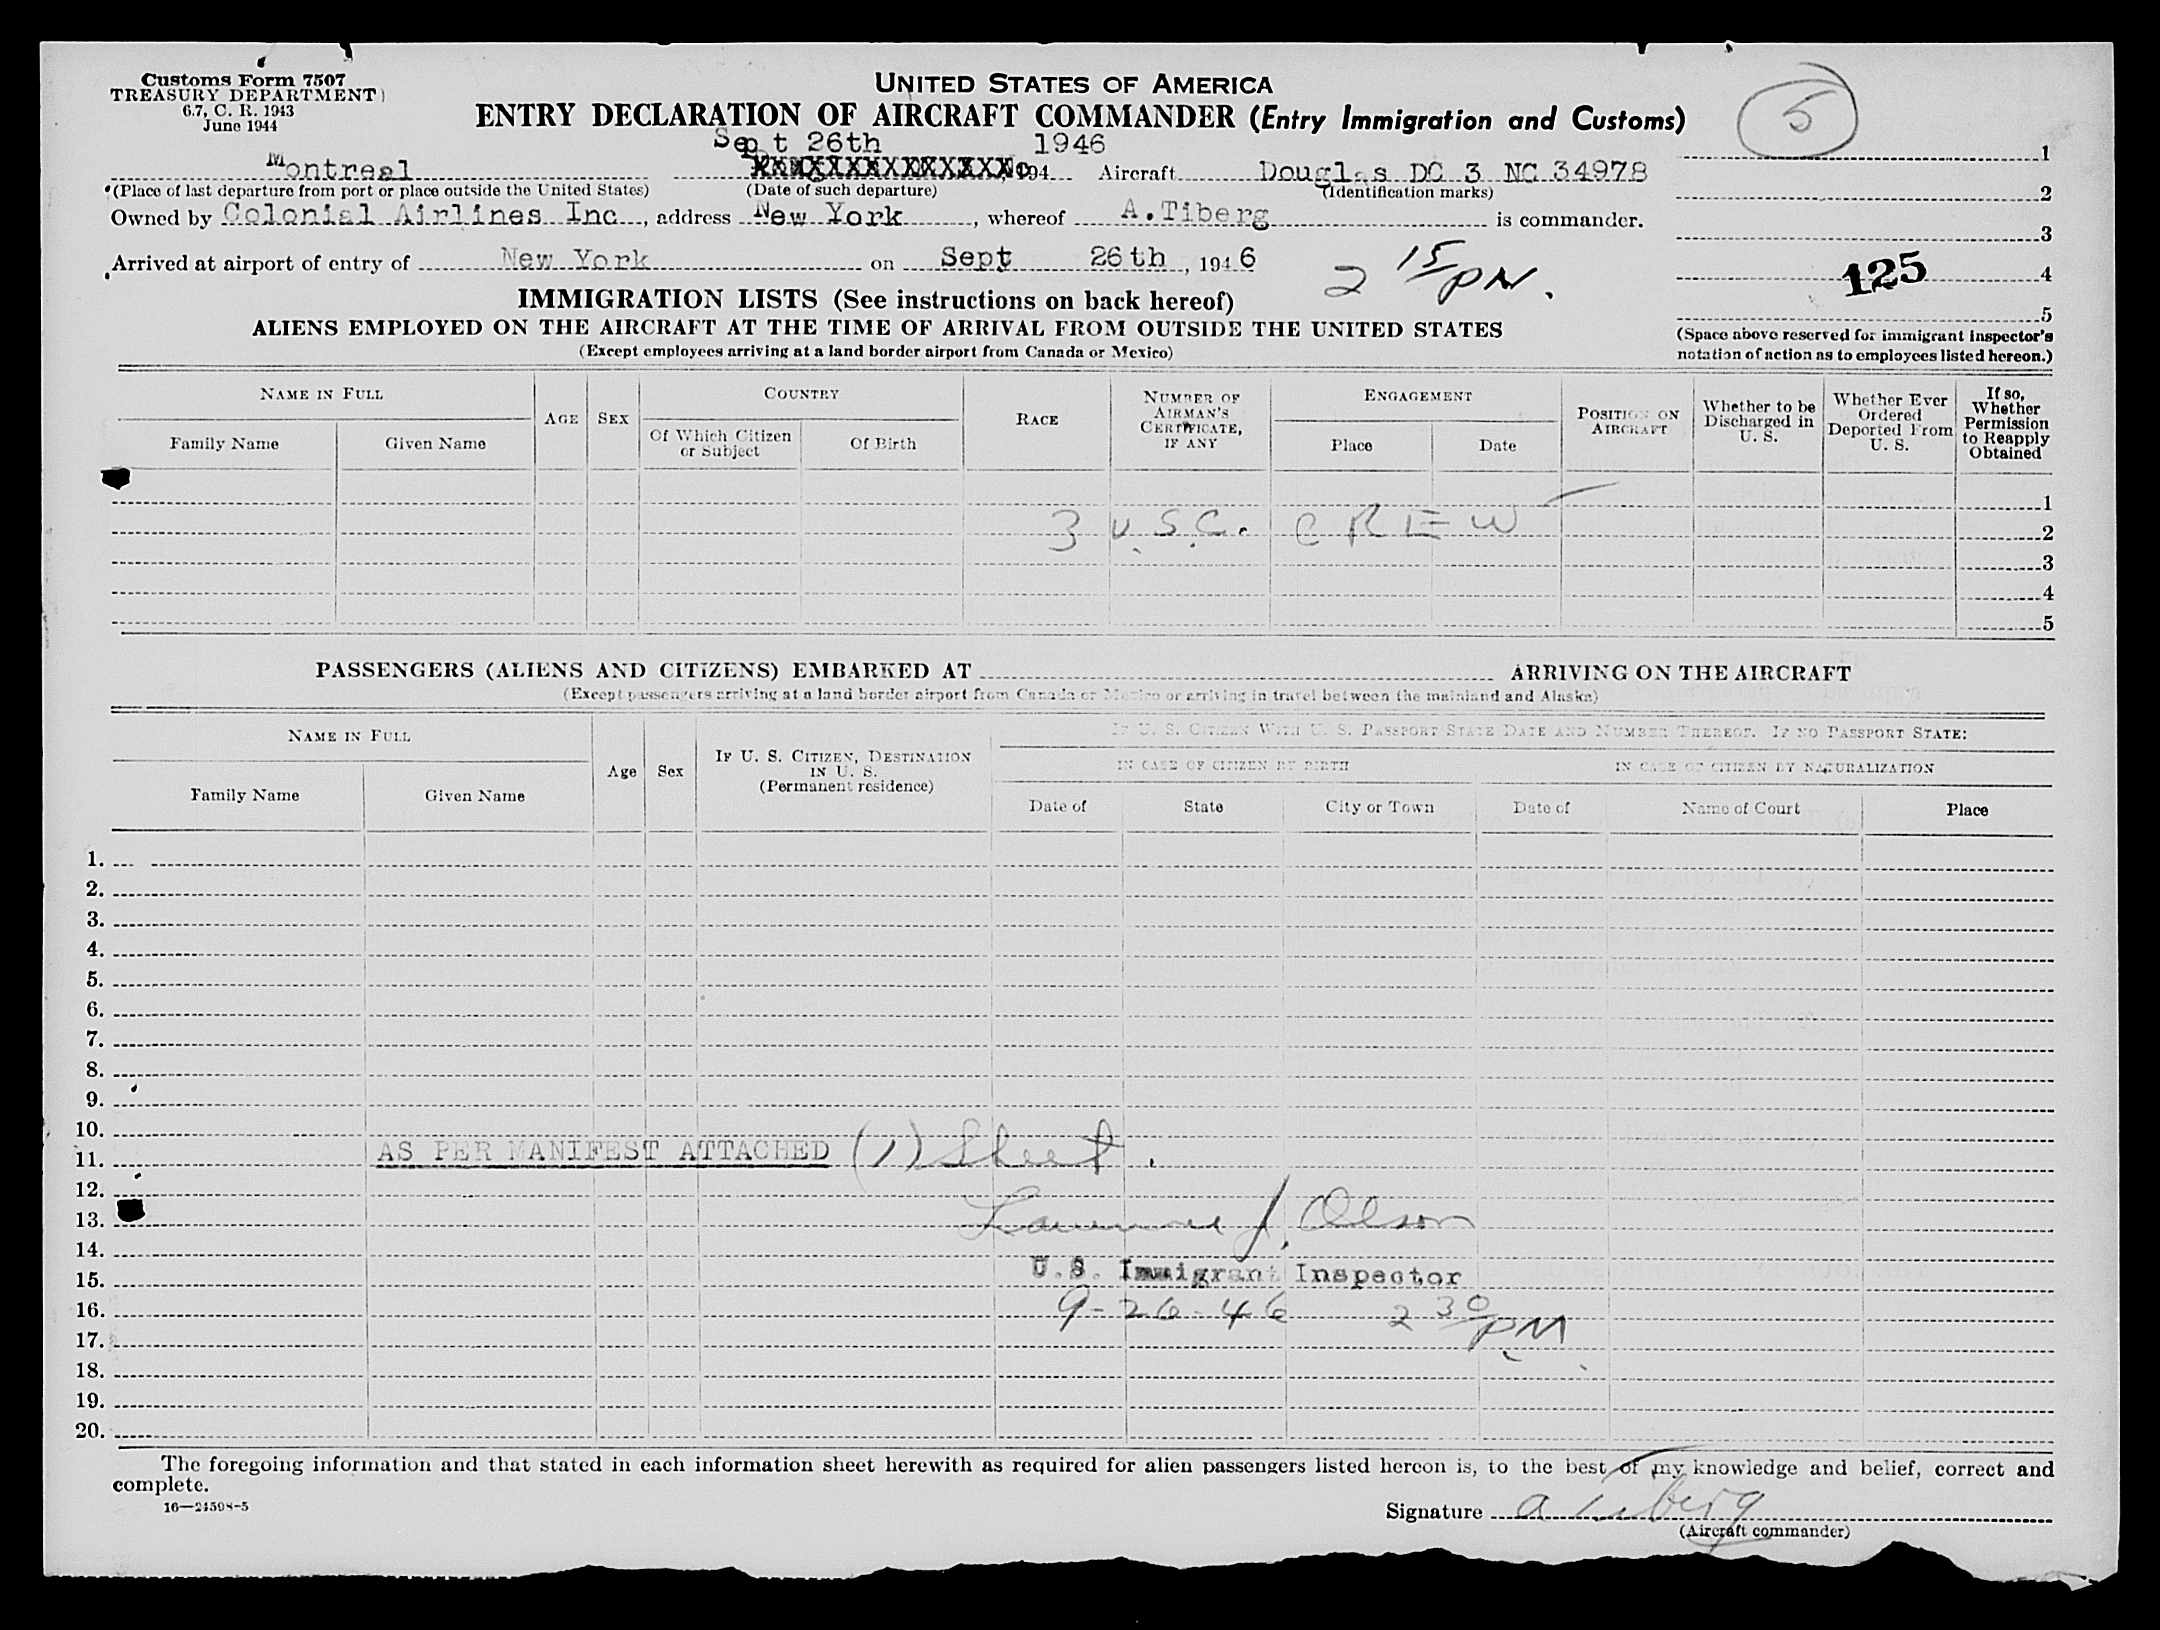 Customs Form 7507
TREASURY DEPARTMENT
6.7, C. R. 1943
June 1944
UNITED STATES OF AMERICA
ENTRY DECLARATION OF AIRCRAFT COMMANDER (Entry Immigration and Customs)
5
Sept 26th 1946
Montreal , 194 Aircraft Douglas DC 3 NC 34978
(Place of last departure from port or place outside the United States) (Date of such departure) (Identification marks)
Owned by Colonial Airlines Inc , address New York , whereof A.Tiberg is commander.
Arrived at airport of entry of New York on Sept 26th , 1946 2 15 PM.
1
2
3
4
5
125
(Space above reserved for immigrant inspector's
notation of action as to employees listed hereon.)
IMMIGRATION LISTS (See instructions on back hereof)
ALIENS EMPLOYED ON THE AIRCRAFT AT THE TIME OF ARRIVAL FROM OUTSIDE THE UNITED STATES
(Except employees arriving at a land border airport from Canada or Mexico)
NAME IN FULL
Family Name Given Name
AGE
SEX
COUNTRY
Of Which Citizen or Subject Of Birth
RACE
NUMBER OF AIRMAN'S CERTIFICATE, IF ANY
ENGAGEMENT
Place Date
POSITION ON AIRCRAFT
Whether to be Discharged in U. S.
Whether Ever Ordered Deported From U. S.
If so, Whether Permission to Reapply Obtained
1
3 U.S.C. CREW 2
3
4
5
PASSENGERS (ALIENS AND CITIZENS) EMBARKED AT ARRIVING ON THE AIRCRAFT
(Except passengers arriving at a land border airport from Canada or Mexico or arriving in travel between the mainland and Alaska)
NAME IN FULL
Family Name Given Name
Age
Sex
IF U. S. CITIZEN, DESTINATION IN U. S.
(Permanent residence)
IF U. S. CITIZEN WITH U. S. PASSPORT STATE DATE AND NUMBER THEREOF. IF NO PASSPORT STATE:
IN CASE OF CITIZEN BY BIRTH IN CASE OF CITIZEN BY NATURALIZATION
Date of State City or Town Date of Name of Court Place
1.
2.
3.
4.
5.
6.
7.
8.
9.
10.
11. AS PER MANIFEST ATTACHED (1) Sheet.
12.
13. Lawrence J. Olson
14.
15. U.S. Immigrant Inspector
16. 9-26-46 2 30 PM
17.
18.
19.
20.
The foregoing information and that stated in each information sheet herewith as required for alien passengers listed hereon is, to the best of my knowledge and belief, correct and
complete.
16—24598-5
Signature A Tiberg
(Aircraft commander)